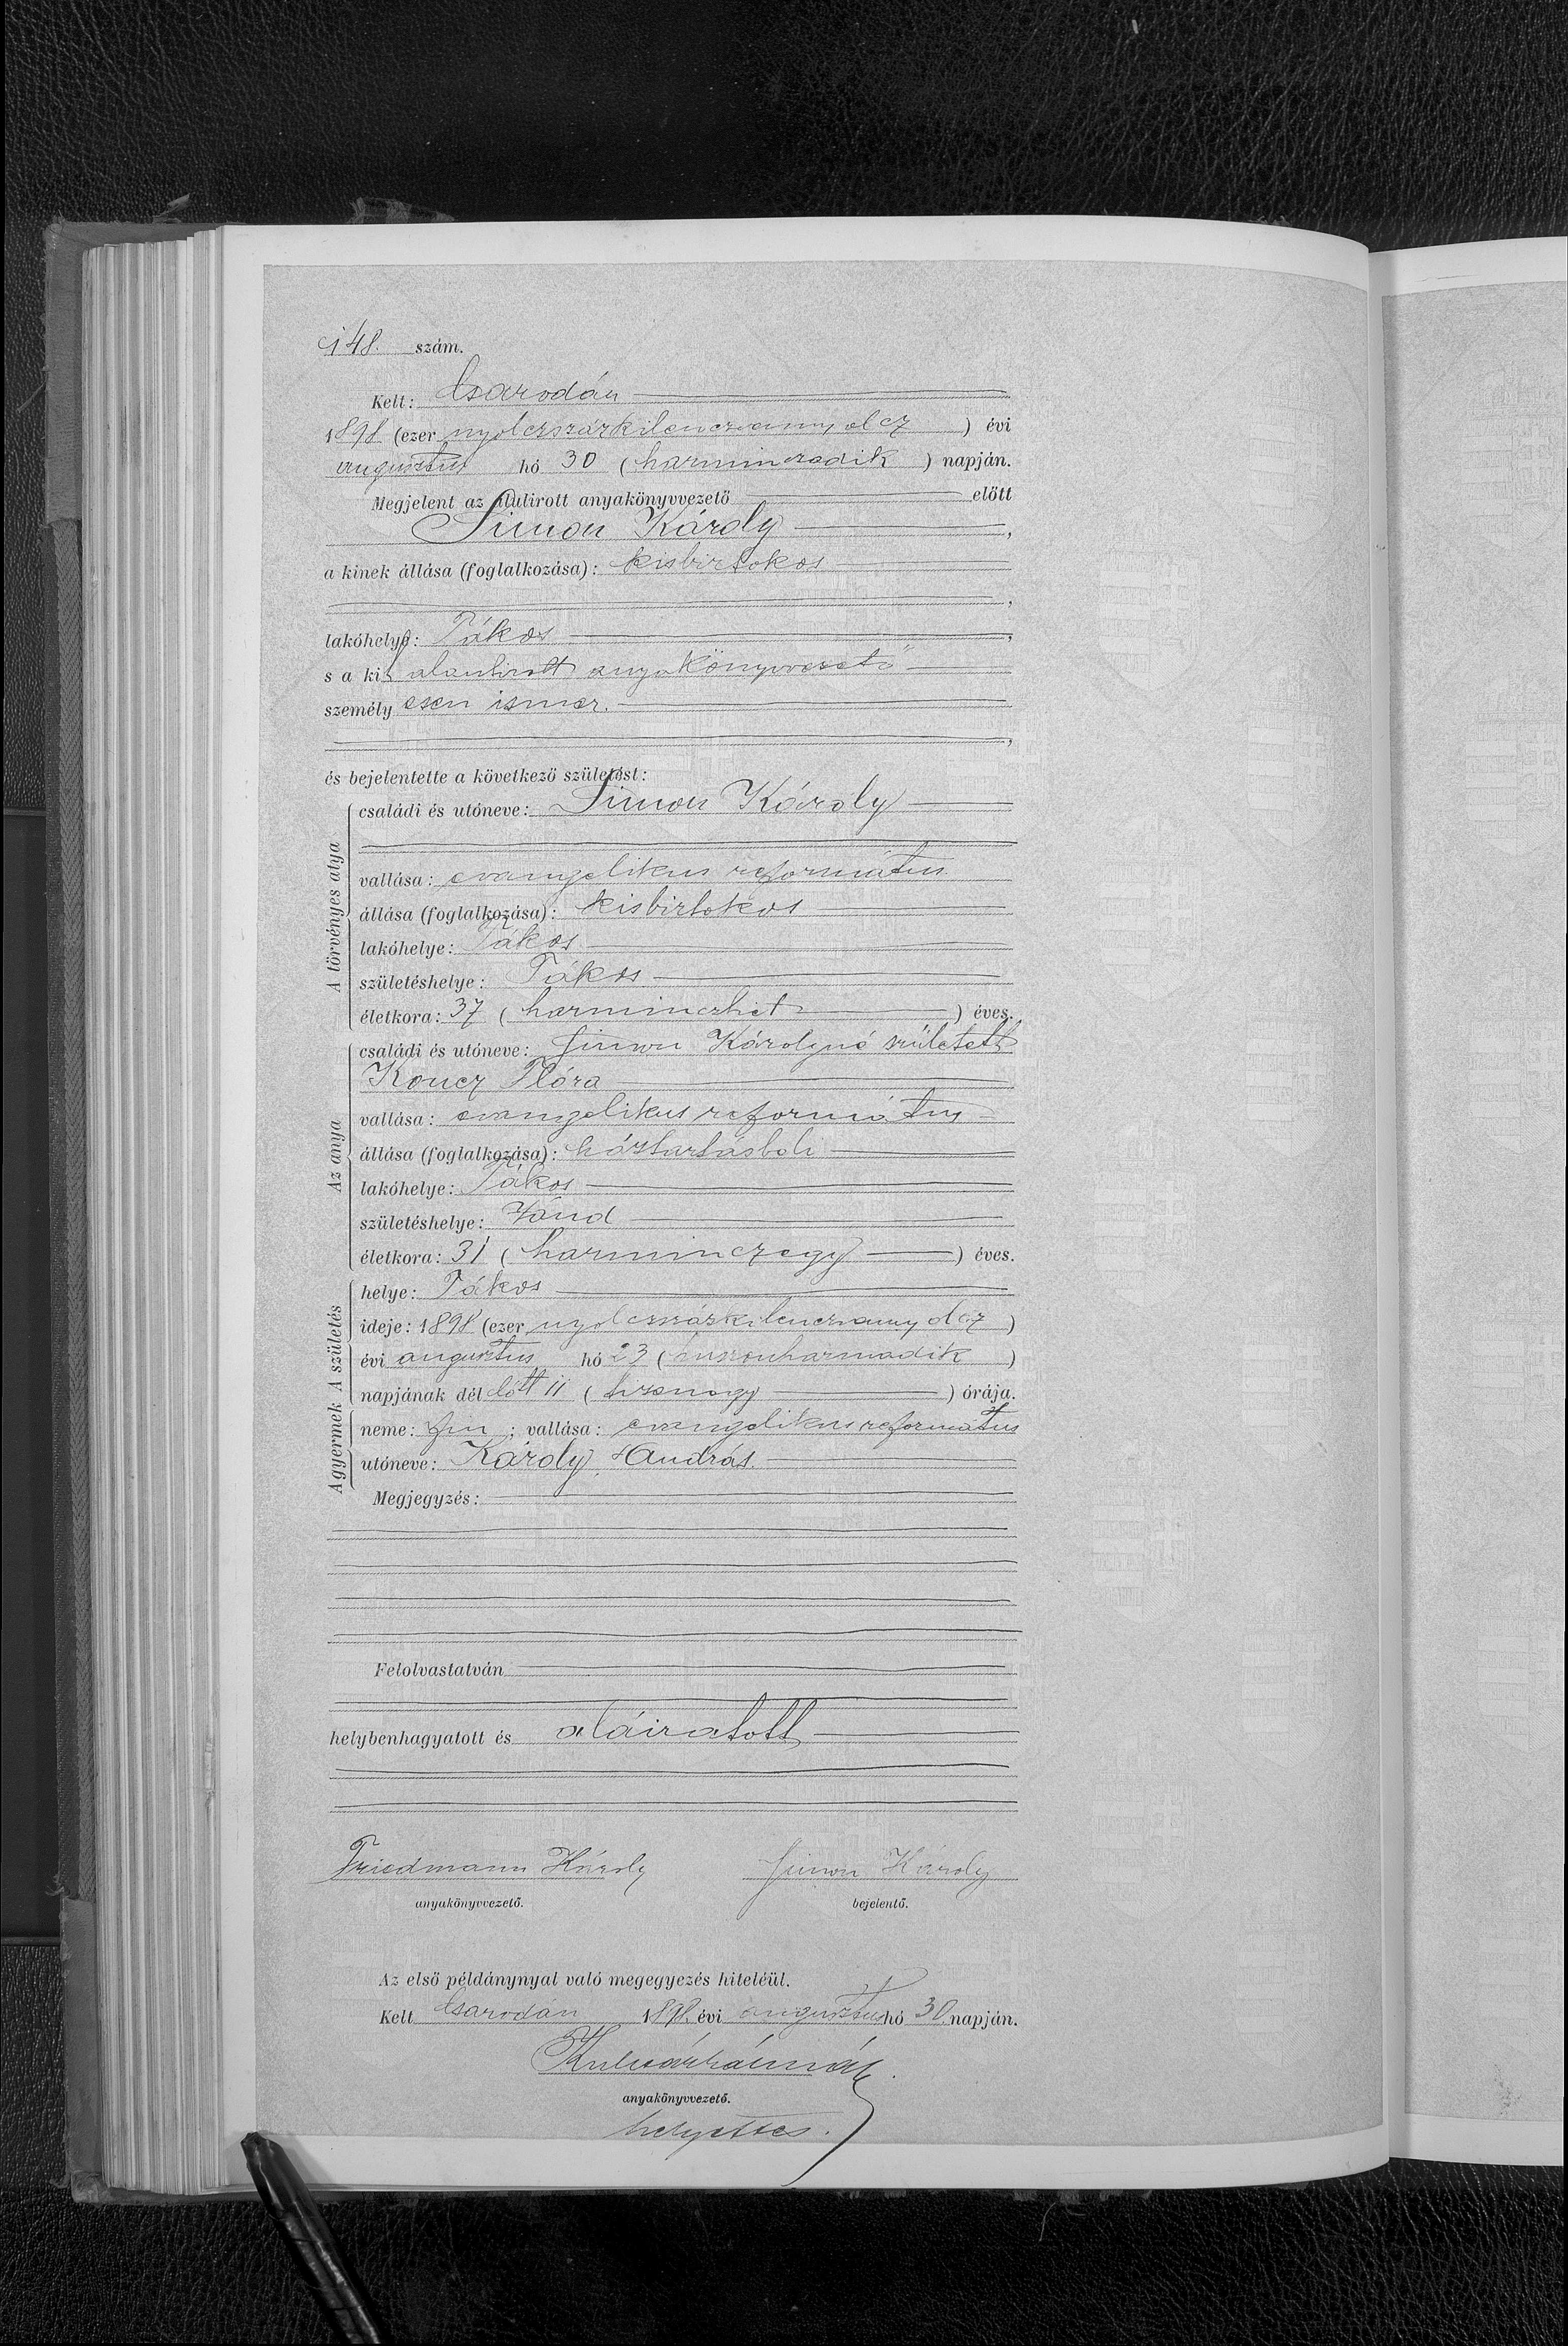 148. szám.
Kelt: Csarodán
1898 (ezer nyolczszázkilenczvennyolcz ) évi
augusztus hó 30 ( harminczadik ) napján.
Megjelent az alulirott anyakönyvvezető előtt
Simon Károly ,
a kinek állása (foglalkozása): kisbirtokos
,
lakóhelye: Tákos ,
s a kit alantirott anyakönyvvezető
személyesen ismer.
,
és bejelentette a következő születést:
A törvényes atya
családi és utóneve: Simon Károly
vallása: evangelikus református
állása (foglalkozása): kisbirtokos
lakóhelye: Tákos
születéshelye: Tákos
életkora: 37 ( harminczhét ) éves.
Az anya
családi és utóneve: Simon Károlyné született
Koncz Flóra
vallása: evangelikus református
állása (foglalkozása): háztartásbeli
lakóhelye: Tákos
születéshelye: Jánd
életkora: 31 ( harminczegy ) éves.
A születés
helye: Tákos
ideje: 1898 (ezer nyolczszázkilenczvennyolcz )
évi augusztus hó 23 ( huszonharmadik )
napjának délelőtt 11 ( tizenegy ) órája.
A gyermek
neme: fiu ; vallása: evangelikus református
utóneve: Károly, András.
Megjegyzés:
Felolvastatván
helybenhagyatott és aláiratott
Friedmann Károly Simon Károly
anyakönyvvezető. bejelentő.
Az első példánynyal való megegyezés hiteléül.
Kelt Csarodán 1898. évi augusztus hó 30 napján.
anyakönyvvezető.
helyettes.